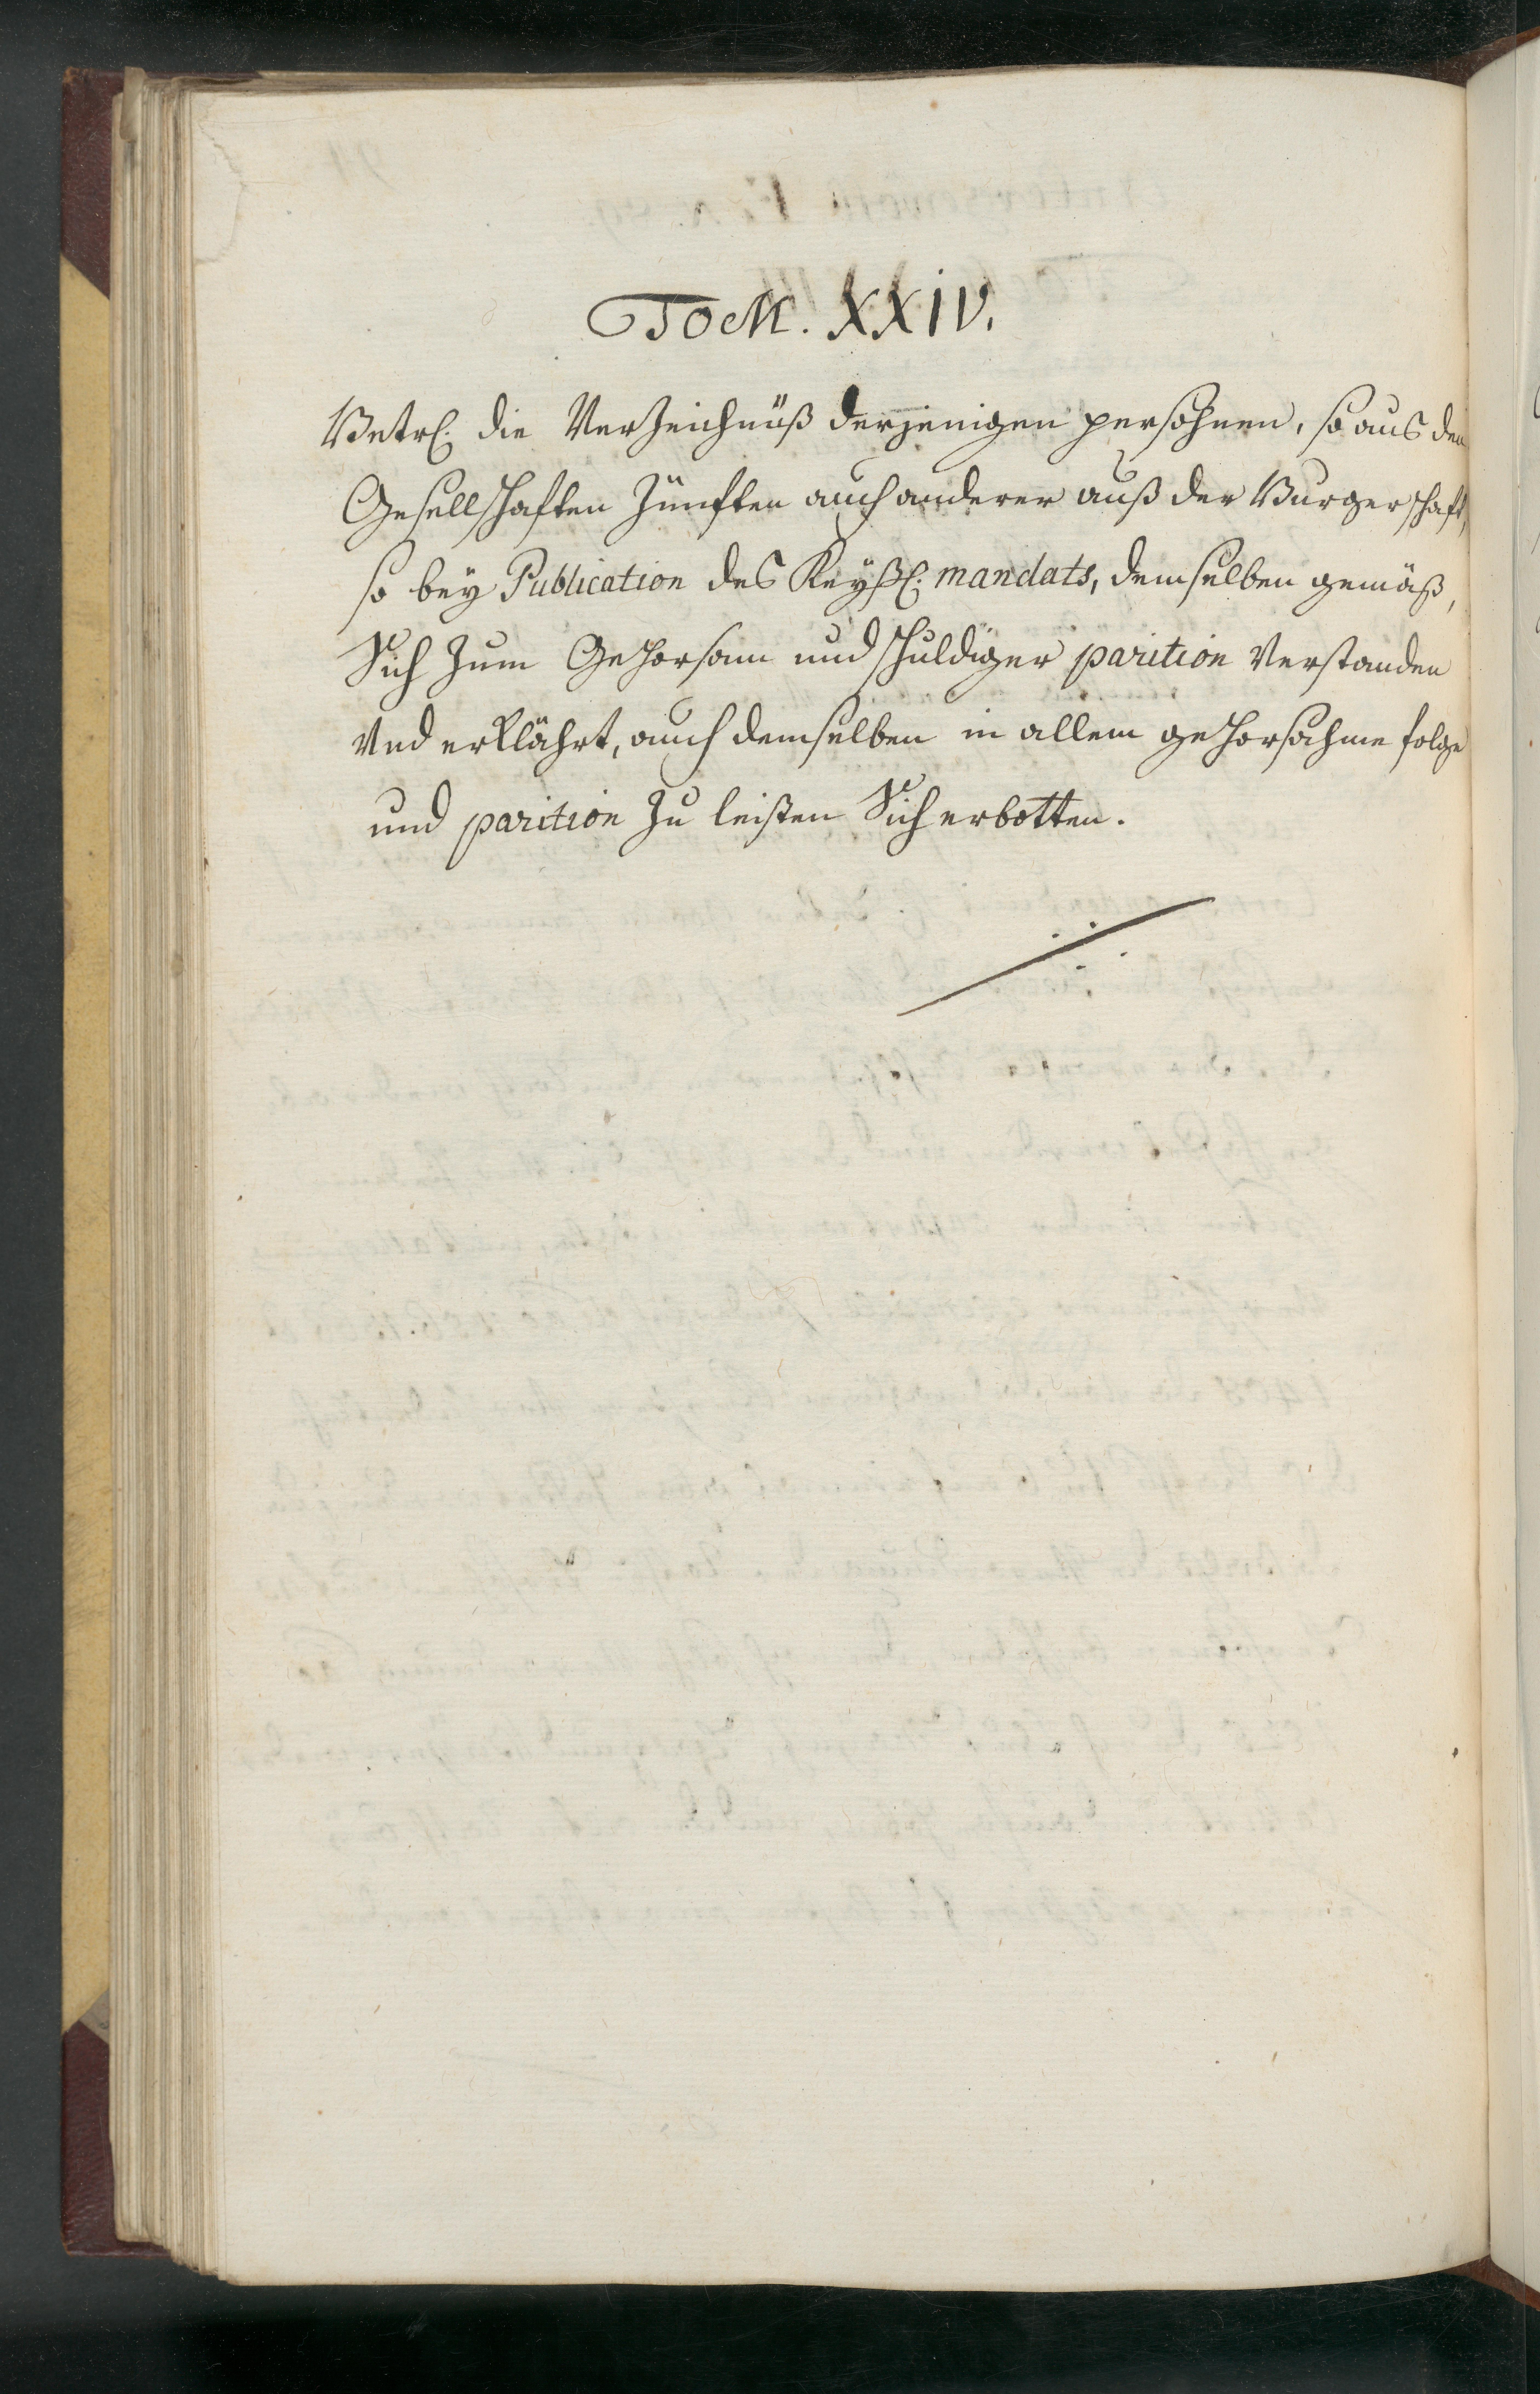 TOM. XXIV.
Betrf. die Verzeichnüß derjenigen persohnen, so aus den
Gesellschafften Zünfften auch anderer auß der Burgerschafft,
so bey Publication des Keyßl. mandats, demselben gemäß,
Sich zum Gehorsam und schuldiger parition Verstanden
Und erklährt, auch demselben in allem gehorsahme folge
und parition zu leisten Sich erbotten.